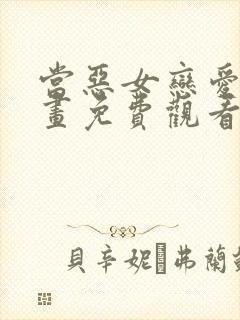 當惡女戀愛
畫免費觀看
貝辛妮·弗蘭